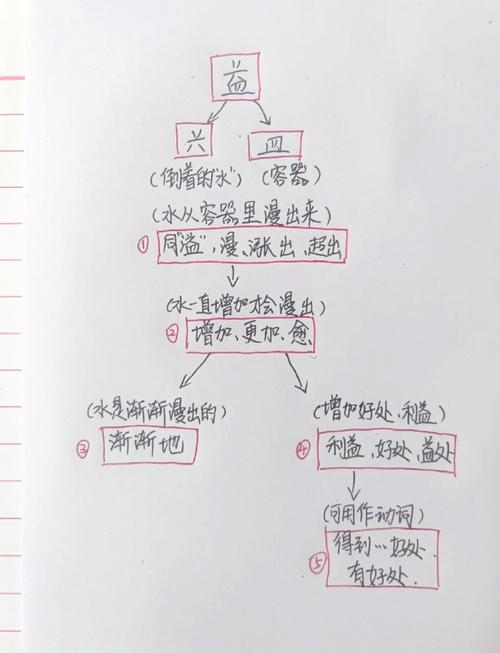 益
六 皿
(倒着的"水") (容器)
(水从容器里漫出来)
① 同"溢",漫、涨出、超出
(水一直增加才会漫出)
② 增加、更加、愈
(水是渐渐漫出的) (增加好处、利益)
③ 渐渐地 ④ 利益、好处、益处
(可用作动词)
⑤ 得到…好处.
有好处.